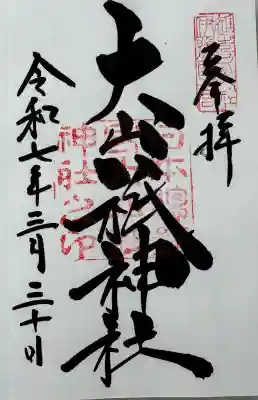 奉拝
大山祇神社
令和七年三月三十日